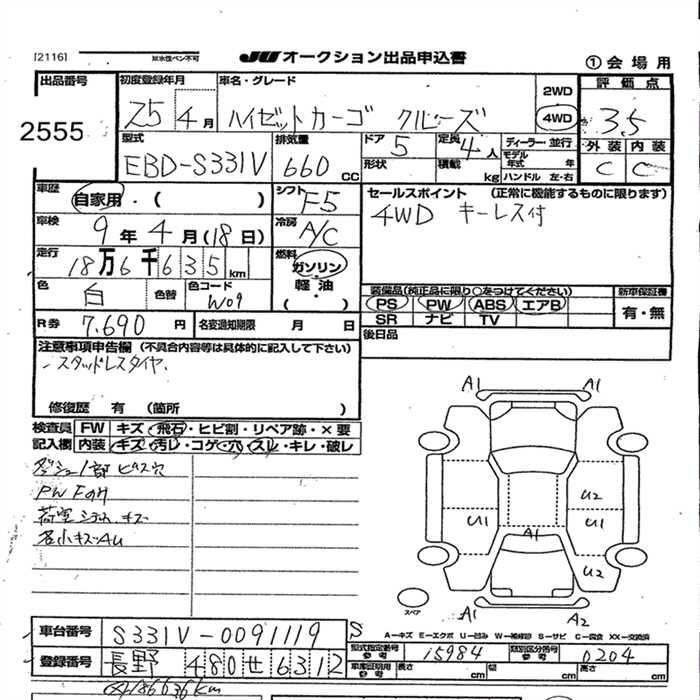 [2116] ㊟水性ペン不可 JU オークション出品申込書 ①会場用
出品番号 初度登録年月 車名・グレード 2WD 評価点
2555 25 4月 ハイゼットカーゴ クルーズ 4WD 3.5
型式 排気量 ドア 定員 ディーラー・並行 外装 内装
EBD-S331V 660CC 5 4人 モデル年式 年 C C
形状 積載 kg ハンドル 左・右
車歴 シフト セールスポイント (正常に機能するものに限ります)
自家用・( ) F5 4WD キーレス付
車検 冷房
9年4月(18日) A/C
走行 燃料
18万6千635km ガソリン・軽油・( )
色 色替 色コード 装備品(純正品に限り○をつけてください) 新車保証権
白 W09 PS PW ABS エアB 有・無
SR ナビ TV
R券 7,690円 名変通知期限 月 日 後日品
注意事項申告欄 (不具合内容等は具体的に記入して下さい)
・スタッドレスタイヤ
修復歴 有 (箇所 )
検査員 FW キズ・飛石・ヒビ割・リペア跡・×要
記入欄 内装 キズ・汚レ・コゲ・穴・スレ・キレ・破レ
ダッシュ1部ビス穴
PW Fのみ
荷室 キズ
各小キズAU
A1 A1
U2
U1 U1
A1
U2
スペア A1 A2
車台番号 S331V-0091119 S A…キズ E…エクボ U…凹み W…補修跡 S…サビ C…腐食 XX…交換済
型式指定番号 参考 15984 類別区分番号 参考 0204
登録番号 長野 480 せ 6312 車庫証明用 参考 長さ 幅 高さ
186636km